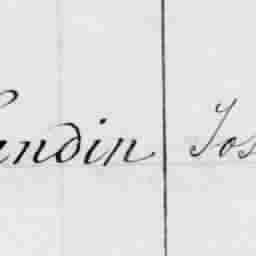 andin Jos